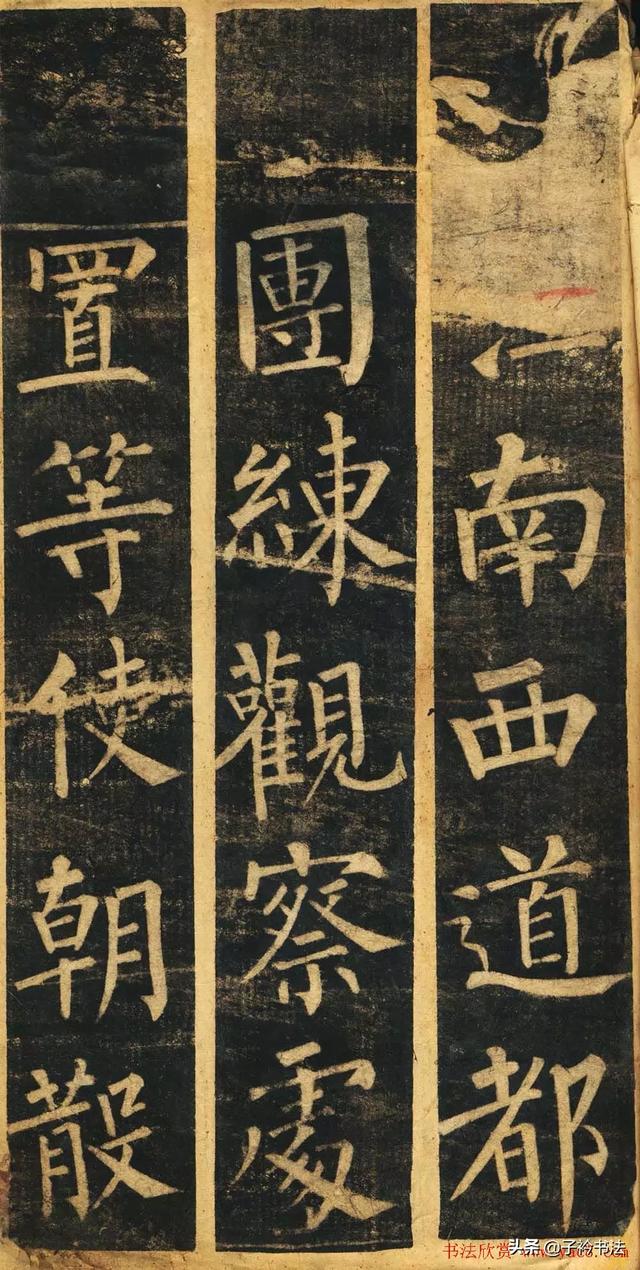 南西道都
團練觀察處
置等使朝散
书法欣赏
头条 @子衿书法